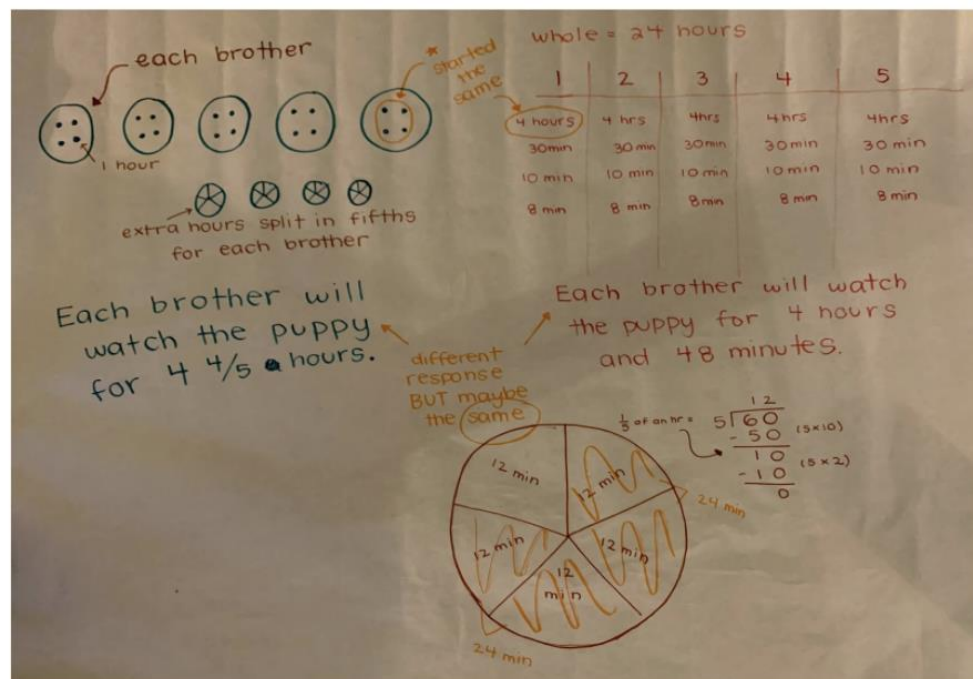 each brother
1 hour
extra hours split in fifths
for each brother
Each brother will
watch the puppy
for 4 4/5 hours.
* started
the
same
whole = 24 hours
1 2 3 4 5
4 hours 4 hrs 4hrs 4hrs 4hrs
30min 30 min 30min 30min 30 min
10 min 10 min 10 min 10 min 10 min
8 min 8 min 8min 8 min 8 min
Each brother will watch
the puppy for 4 hours
and 48 minutes.
different
response
BUT maybe
the same
12 min
12 min
12 min
12 min
12
min
24 min
24 min
1/5 of an hr =
12
5 60
- 50 (5x10)
10
- 10 (5x2)
0